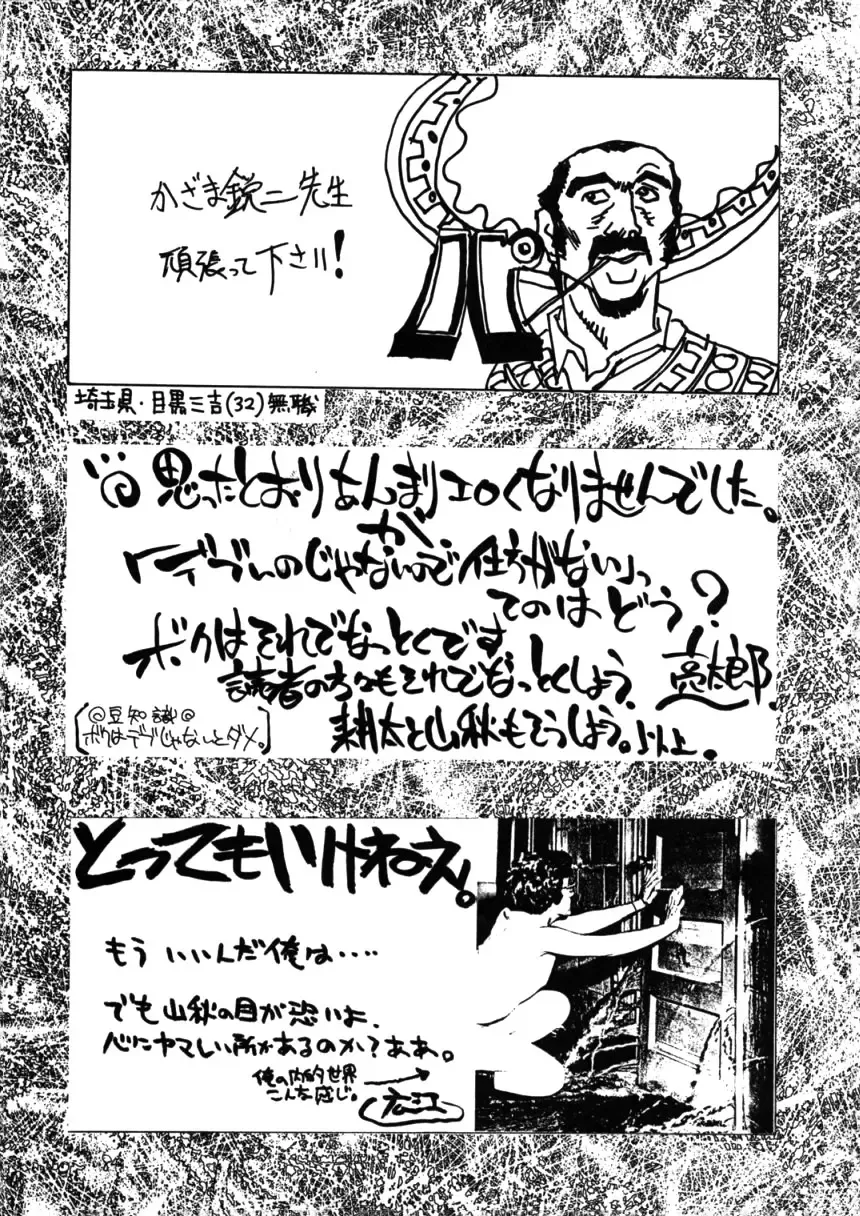 かざま鋭二先生
頑張って下さい!
埼玉県・目黒三吉(32)無職
思ったとおりあんまりエロくなりませんでした。
が
「デブいのじゃないので仕方がない」っ
てのはどう?
ボクはそれでなっとくです
読者の方々もそれでなっとくしよう。
亮太郎
耕太と山秋もそうしよう。以上。
◎豆知識◎
ボクはデブじゃないとダメ。
とってもいけねえ。
もういいんだ俺は‥‥
でも山秋の目が恐いよ、
心にヤマしい所があるのか?ああ。
俺の内的世界
こんな感じ。
広江